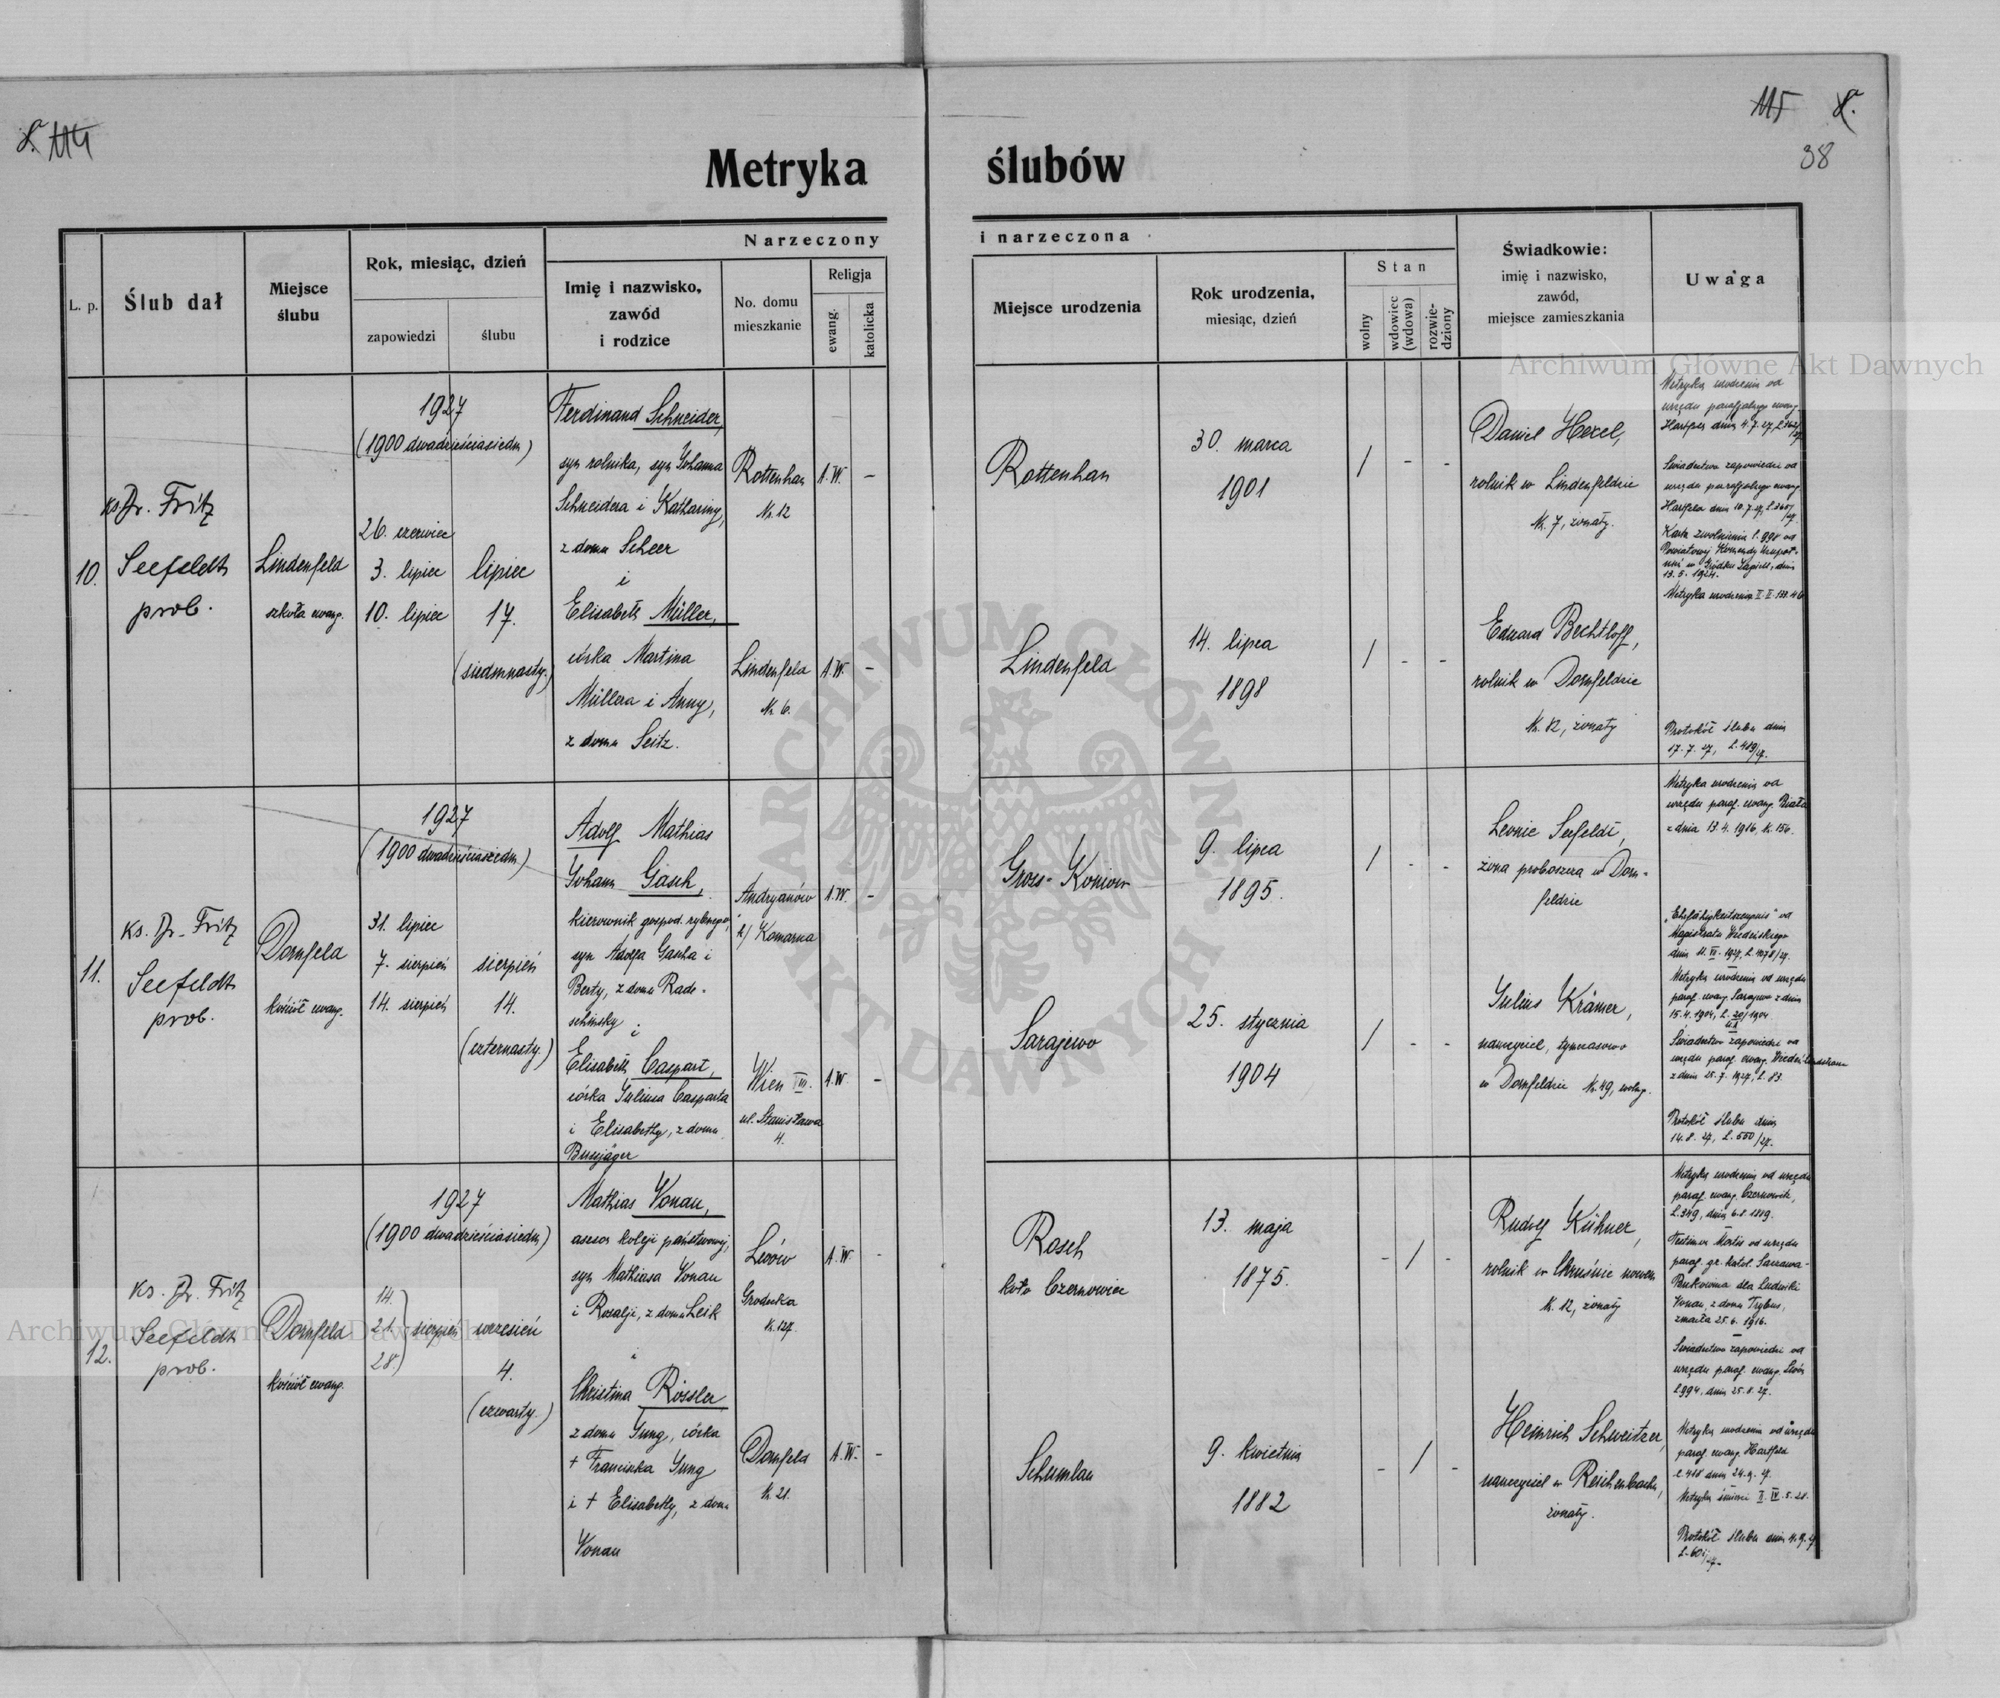 S. 114
115 S.
38
Metryka ślubów
Narzeczony i narzeczona
L. p.
Ślub dał
Miejsce
ślubu
Rok, miesiąc, dzień
zapowiedzi
ślubu
Imię i nazwisko,
zawód
i rodzice
No. domu
mieszkanie
Religja
ewang.
katolicka
Miejsce urodzenia
Rok urodzenia,
miesiąc, dzień
Stan
wolny
wdowiec
(wdowa)
rozwie-
dziony
Świadkowie:
imię i nazwisko,
zawód,
miejsce zamieszkania
Uwaga
10.
ks. Dr. Fritz
Seefeldt
prob.
Lindenfeld
szkoła ewang.
1927
(1900 dwadzieściasiedm)
26. czerwiec
3. lipiec
10. lipiec
lipiec
17.
(siedmnasty.)
Ferdinand Schneider,
syn rolnika, syn Johanna
Schneidera i Kathariny,
z domu Scheer
i
Elisabeth Müller,
córka Martina
Müllera i Anny,
z domu Seitz.
Rottenhan
Nr. 12
A.W. -
Lindenfeld
Nr. 6.
A.W. -
Rottenhan
30. marca
1901
/ - -
Lindenfeld
14. lipca
1898
/ - -
Daniel Hexel,
rolnik w Lindenfeldzie
Nr. 7, żonaty.
Eduard Bechtloff,
rolnik w Dornfeldzie
Nr. 12, żonaty
Metryka urodzenia od
urzędu parafjalnego ewang.
Hartfeld dnia 4. 7. 27,
Świadectwo zapowiedzi od
urzędu parafjalnego ewang.
Hartfeld dnia 10. 7. 27,
Karta zwolnienia l. 998 od
Powiatowej Komendy Uzupeł-
nień w Gródku Jagiell., dnia
13. 5. 1924.
Metryka urodzenia
Protokół ślubu dnia
17. 7. 27, L. 489/27.
11.
ks. Dr. Fritz
Seefeldt
prob.
Dornfeld
kościół ewang.
1927
(1900 dwadzieściasiedm)
31. lipiec
7. sierpień
14. sierpień
sierpień
14.
(czternasty.)
Adolf Mathias
Johann Gasch,
kierownik gospod. rybnego,
syn Adolfa Gascha i
Berty, z domu Rade-
schinsky i
Elisabeth Caspart,
córka Juliusa Casparta
i Elisabethy, z domu
Bussjäger
Andryanów
k/ Komarna
A.W. -
Wien III.
ul. Stanisława
4.
A.W. -
Gross-Koniow
9. lipca
1895.
/ - -
Sarajewo
25. stycznia
1904
/ - -
Leonie Seefeldt,
żona proboszcza w Dorn-
feldzie
Julius Krämer,
nauczyciel, tymczasowo
w Dornfeldzie Nr. 49, wolny.
Metryka urodzenia od
urzędu paraf. ewang. Biała
z dnia 13. 4. 1916, N. 156.
"Ehefähigkeitszeugnis" od
Magistratu Wiedeńskiego
Metryka urodzenia od urzędu
paraf. ewang. Sarajewo z dnia
15. 4. 1904,
Świadectwo zapowiedzi od
urzędu paraf. ewang. Wiedeń Landstrasse
z dnia 25. 7. 1927, L. 83.
Protokół ślubu dnia
14. 8. 27, L. 550/27.
12.
ks. Dr. Fritz
Seefeldt
prob.
Dornfeld
kościół ewang.
1927
(1900 dwadzieściasiedm)
14.
21. sierpień
28.
wrzesień
4.
(czwarty.)
Mathias Vonau,
asesor kolei państwowej,
syn Mathiasa Vonau
i Rozalji, z domu Leik
i
Christina Rössler
z domu Jung, córka
+ Franciszka Jung
i + Elisabethy, z domu
Vonau
Lwów
Grodecka
N. 127.
A.W. -
Dornfeld
N. 21.
A.W. -
Rosch
koło Czernowiec
13. maja
1875.
- / -
Schumlau
9. kwietnia
1882
- / -
Rudolf Kühner,
rolnik w Chrusnie nowem
N. 12, żonaty
Heinrich Schweitzer,
nauczyciel w Reichenbachu,
żonaty.
Metryka urodzenia od urzędu
paraf. ewang. Czernowitz,
L. 349, dnia 6. 8. 1889.
paraf. gr. katol.
Bukowina dla Ludwiki
Vonau, z domu Trybus,
zmarła 25. 6. 1916.
Świadectwo zapowiedzi od
urzędu paraf. ewang. Lwów
L 994, dnia 25. 8. 27.
Metryka urodzenia od urzędu
paraf. ewang. Hartfeld
L 418 dnia 24. 9. 27.
Metryka śmierci
Protokół ślubu dnia 4. 9. 27
Archiwum Główne Akt Dawnych
Archiwum Główne Akt Dawnych
ARCHIWUM GŁÓWNE AKT DAWNYCH